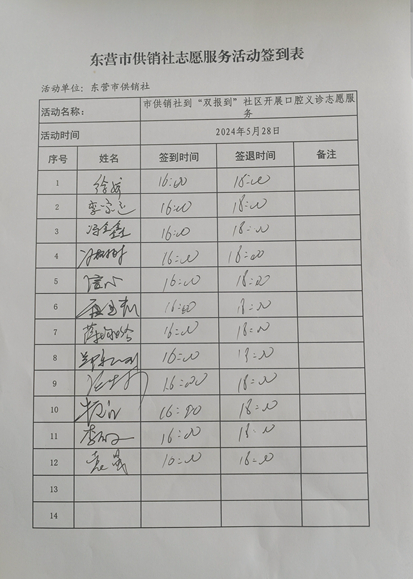 东营市供销社志愿服务活动签到表
活动单位：东营市供销社
活动名称： 市供销社到“双报到”社区开展口腔义诊志愿服务
活动时间 2024年5月28日
序号 姓名 签到时间 签退时间 备注
1 徐 16:00 18:00
2 李 16:00 18:00
3 冯鑫鑫 16:00 18:00
4 16:00 18:00
5 16:00 18:00
6 16:00 18:00
7 薛 16:00 18:00
8 郑 16:00 18:00
9 16:00 18:00
10 16:00 18:00
11 李 16:00 18:00
12 袁 10:00 18:00
13
14